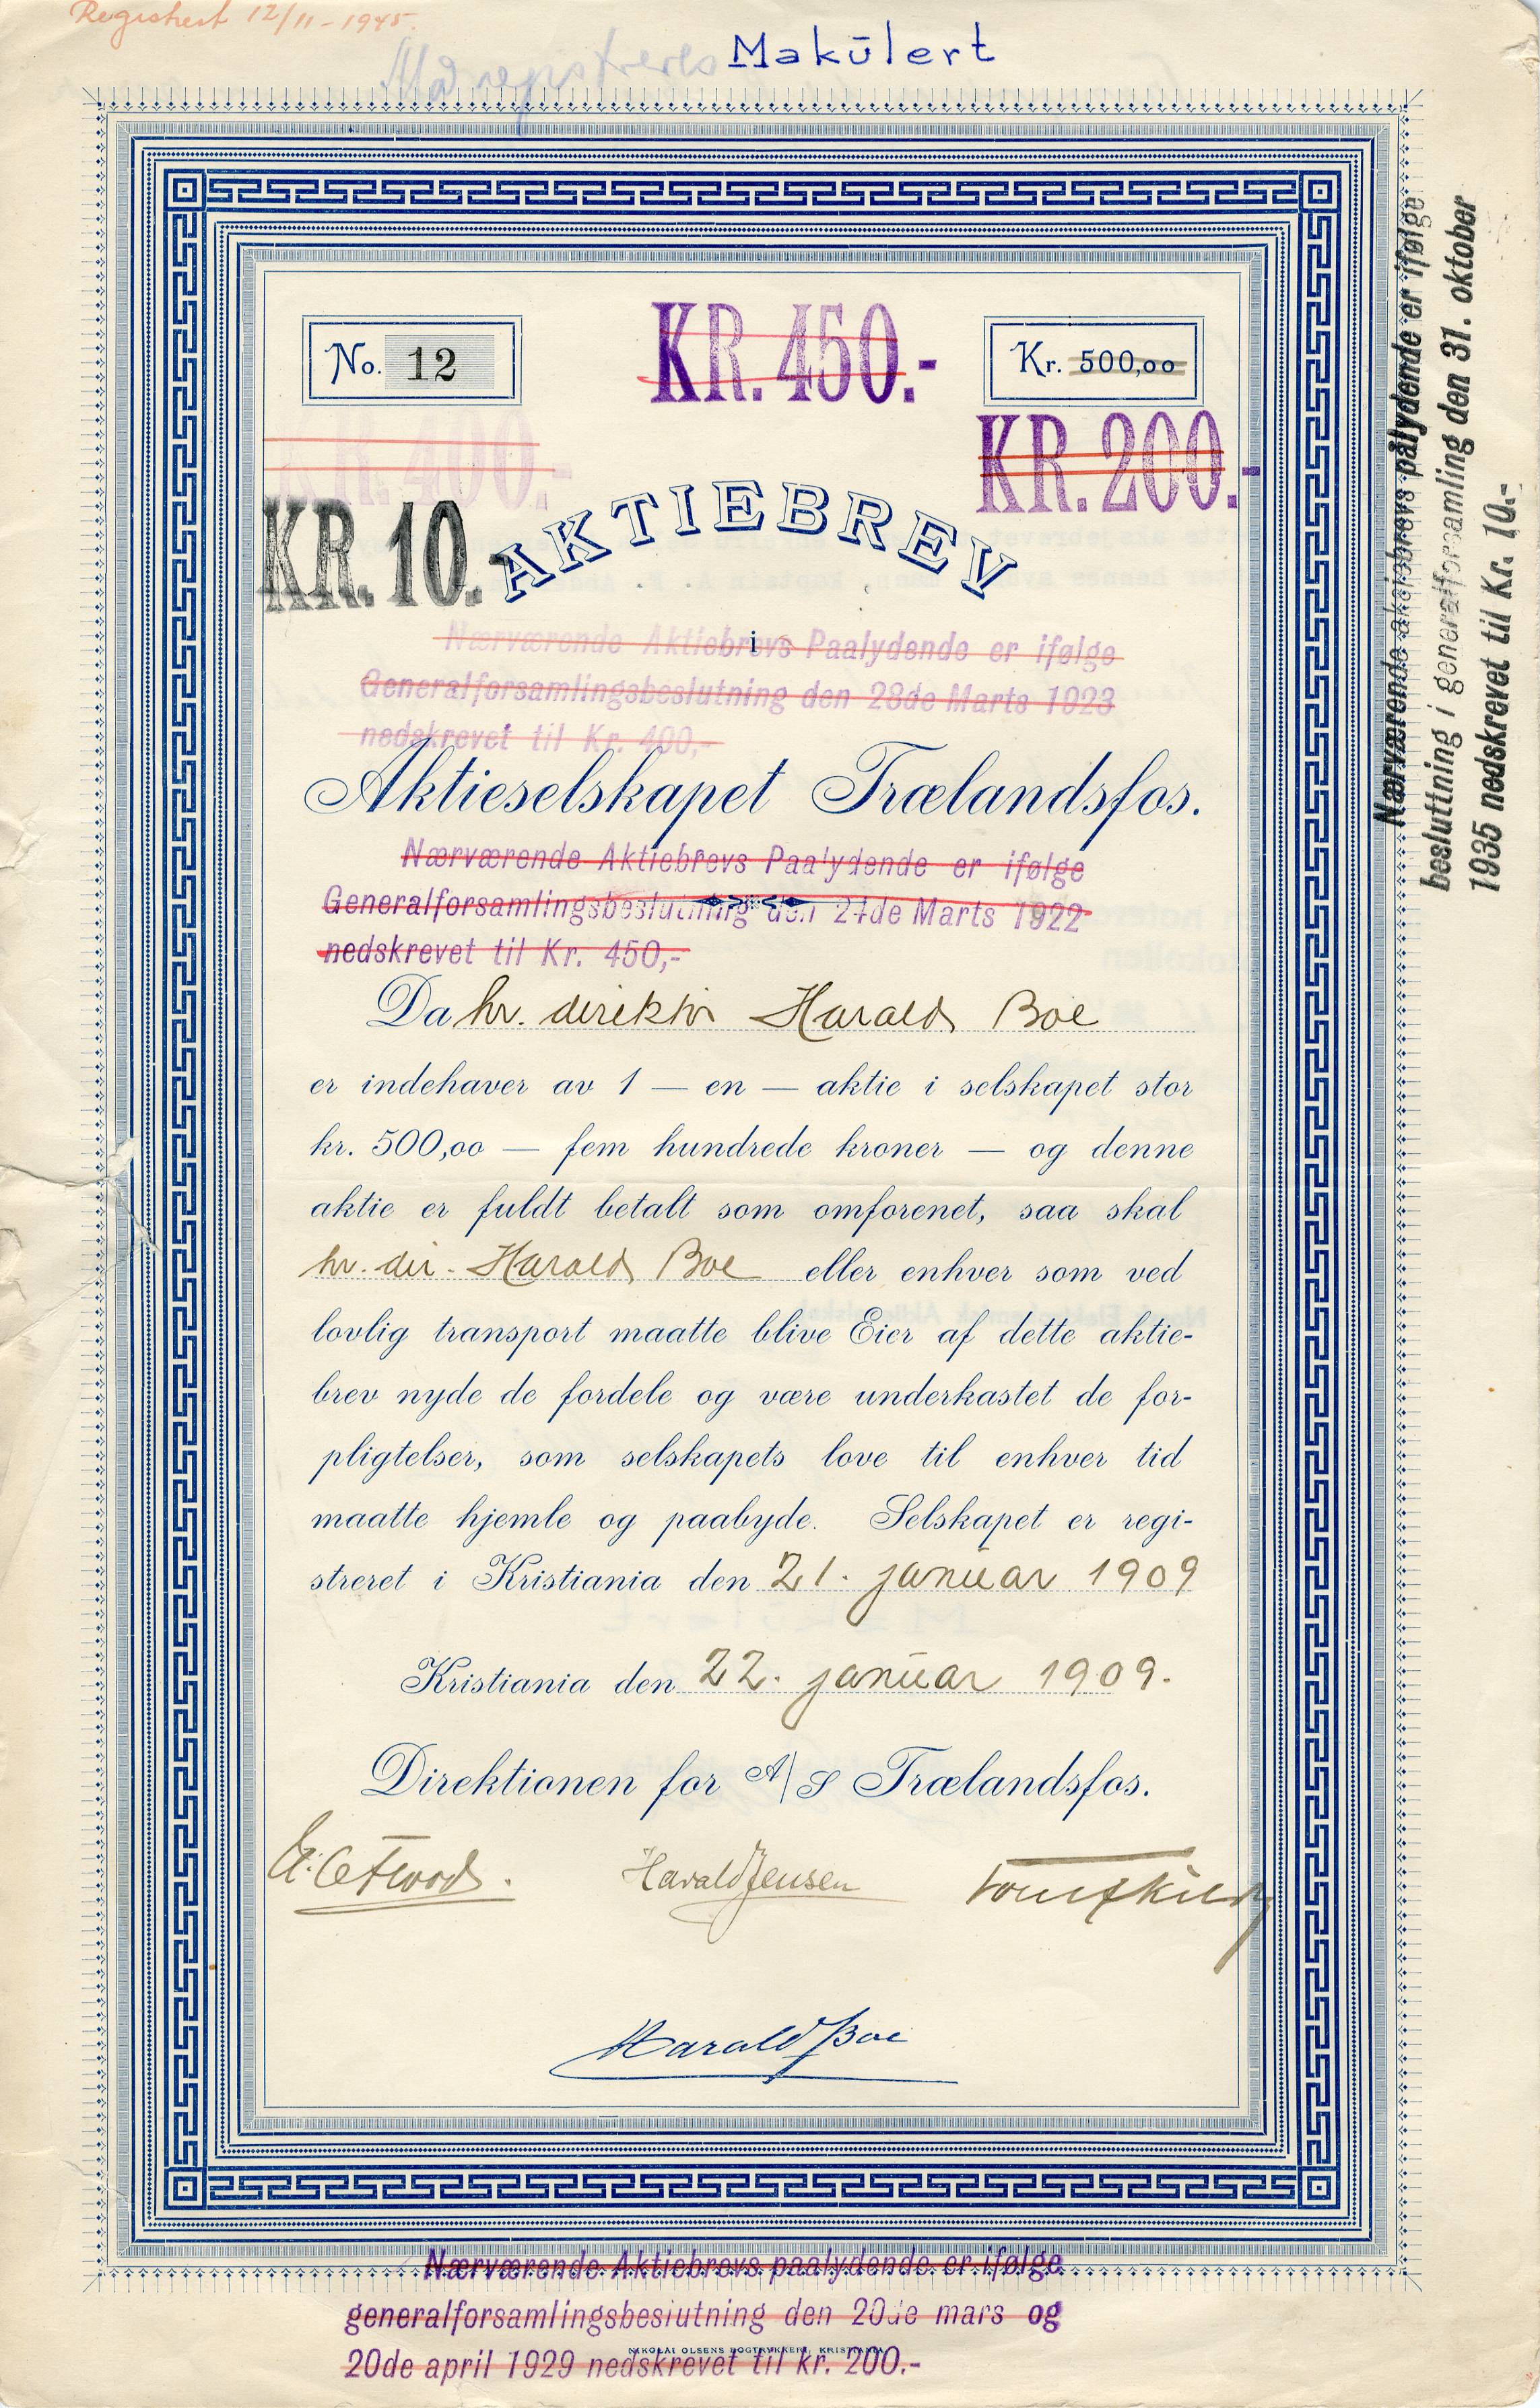 Registrert 12/11-1945.
Må registreres Makulert
No. 12
KR. 450.-
Kr. 500,00
KR. 400.-
KR. 200.-
KR. 10.-
AKTIEBREV
i
Nærværende Aktiebrevs Paalydende er ifølge
Generalforsamlingsbeslutning den 28de Marts 1923
nedskrevet til Kr. 400,-
Aktieselskapet Trælandsfos.
Nærværende Aktiebrevs Paalydende er ifølge
Generalforsamlingsbeslutning den 24de Marts 1922
nedskrevet til Kr. 450,-
Da hr. direktør Harald Boe
er indehaver av 1 — en — aktie i selskapet stor
kr. 500,00 — fem hundrede kroner — og denne
aktie er fuldt betalt som omforenet, saa skal
hr. dir. Harald Boe eller enhver som ved
lovlig transport maatte blive Eier af dette aktie-
brev nyde de fordele og være underkastet de for-
pligtelser, som selskapets love til enhver tid
maatte hjemle og paabyde. Selskapet er regi-
streret i Kristiania den 21. januar 1909
Kristiania den 22. januar 1909.
Direktionen for A/S Trælandsfos.
Harald Jensen
Harald Boe
Nærværende Aktiebrevs paalydende er ifølge
generalforsamlingsbeslutning den 20de mars og
20de april 1929 nedskrevet til kr. 200.-
NIKOLAI OLSENS BOGTRYKKERI, KRISTIANIA
Nærværende aksjebrevs pålydende er ifølge
besluttning i generalforsamling den 31. oktober
1935 nedskrevet til Kr. 10.-